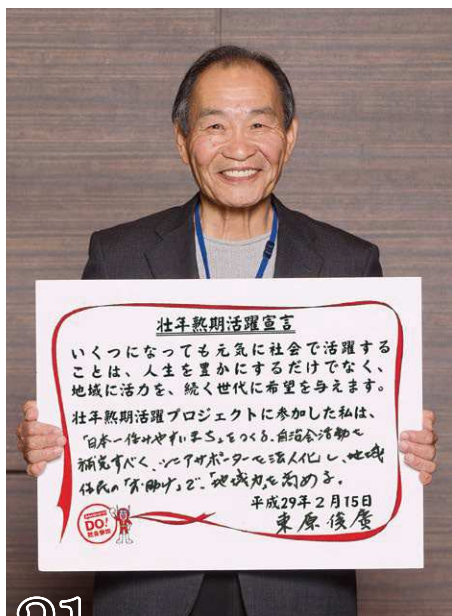 壮年熟期活躍宣言
いくつになっても元気に社会で活躍する
ことは、人生を豊かにするだけでなく、
地域に活力を、続く世代に希望を与えます。
壮年熟期活躍プロジェクトに参加した私は、
「日本一住みやすいまち」をつくる。自治会活動を
補完すべく、シニアサポーターを法人化し、地域
住民の「お助け」で、「地域力を高める。
平成29年2月15日
東原俊廣
DO!
社会参加
21